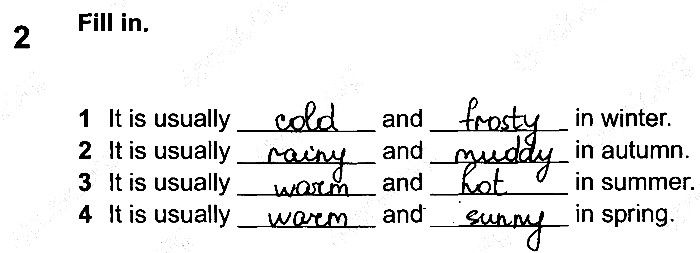 2 Fill in.
1 It is usually cold and frosty in winter.
2 It is usually rainy and muddy in autumn.
3 It is usually warm and hot in summer.
4 It is usually warm and sunny in spring.